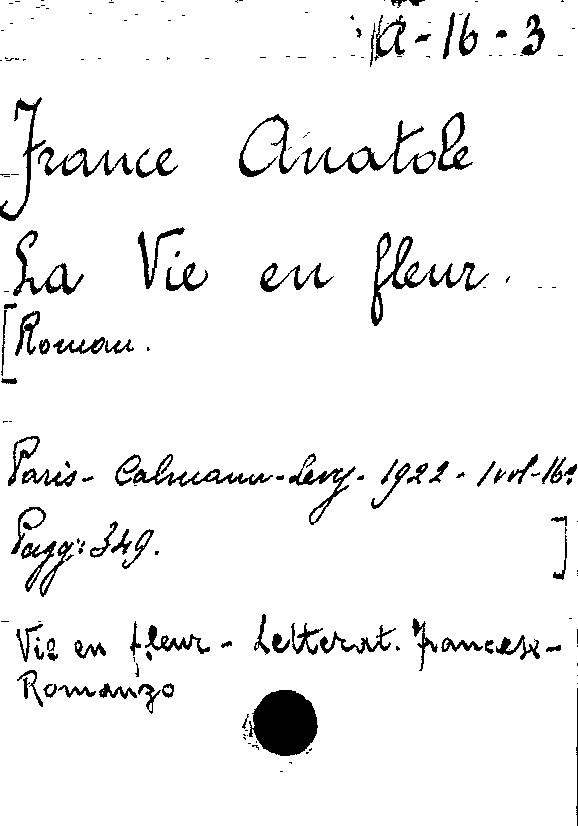 A-16-3
France Anatole
La Vie en fleur.
[Roman.
Paris- Calmann-Levy- 1922- 1 vol-16º
Pagg: 349. ]
Vie en fleur - Letterat. francese-
Romanzo